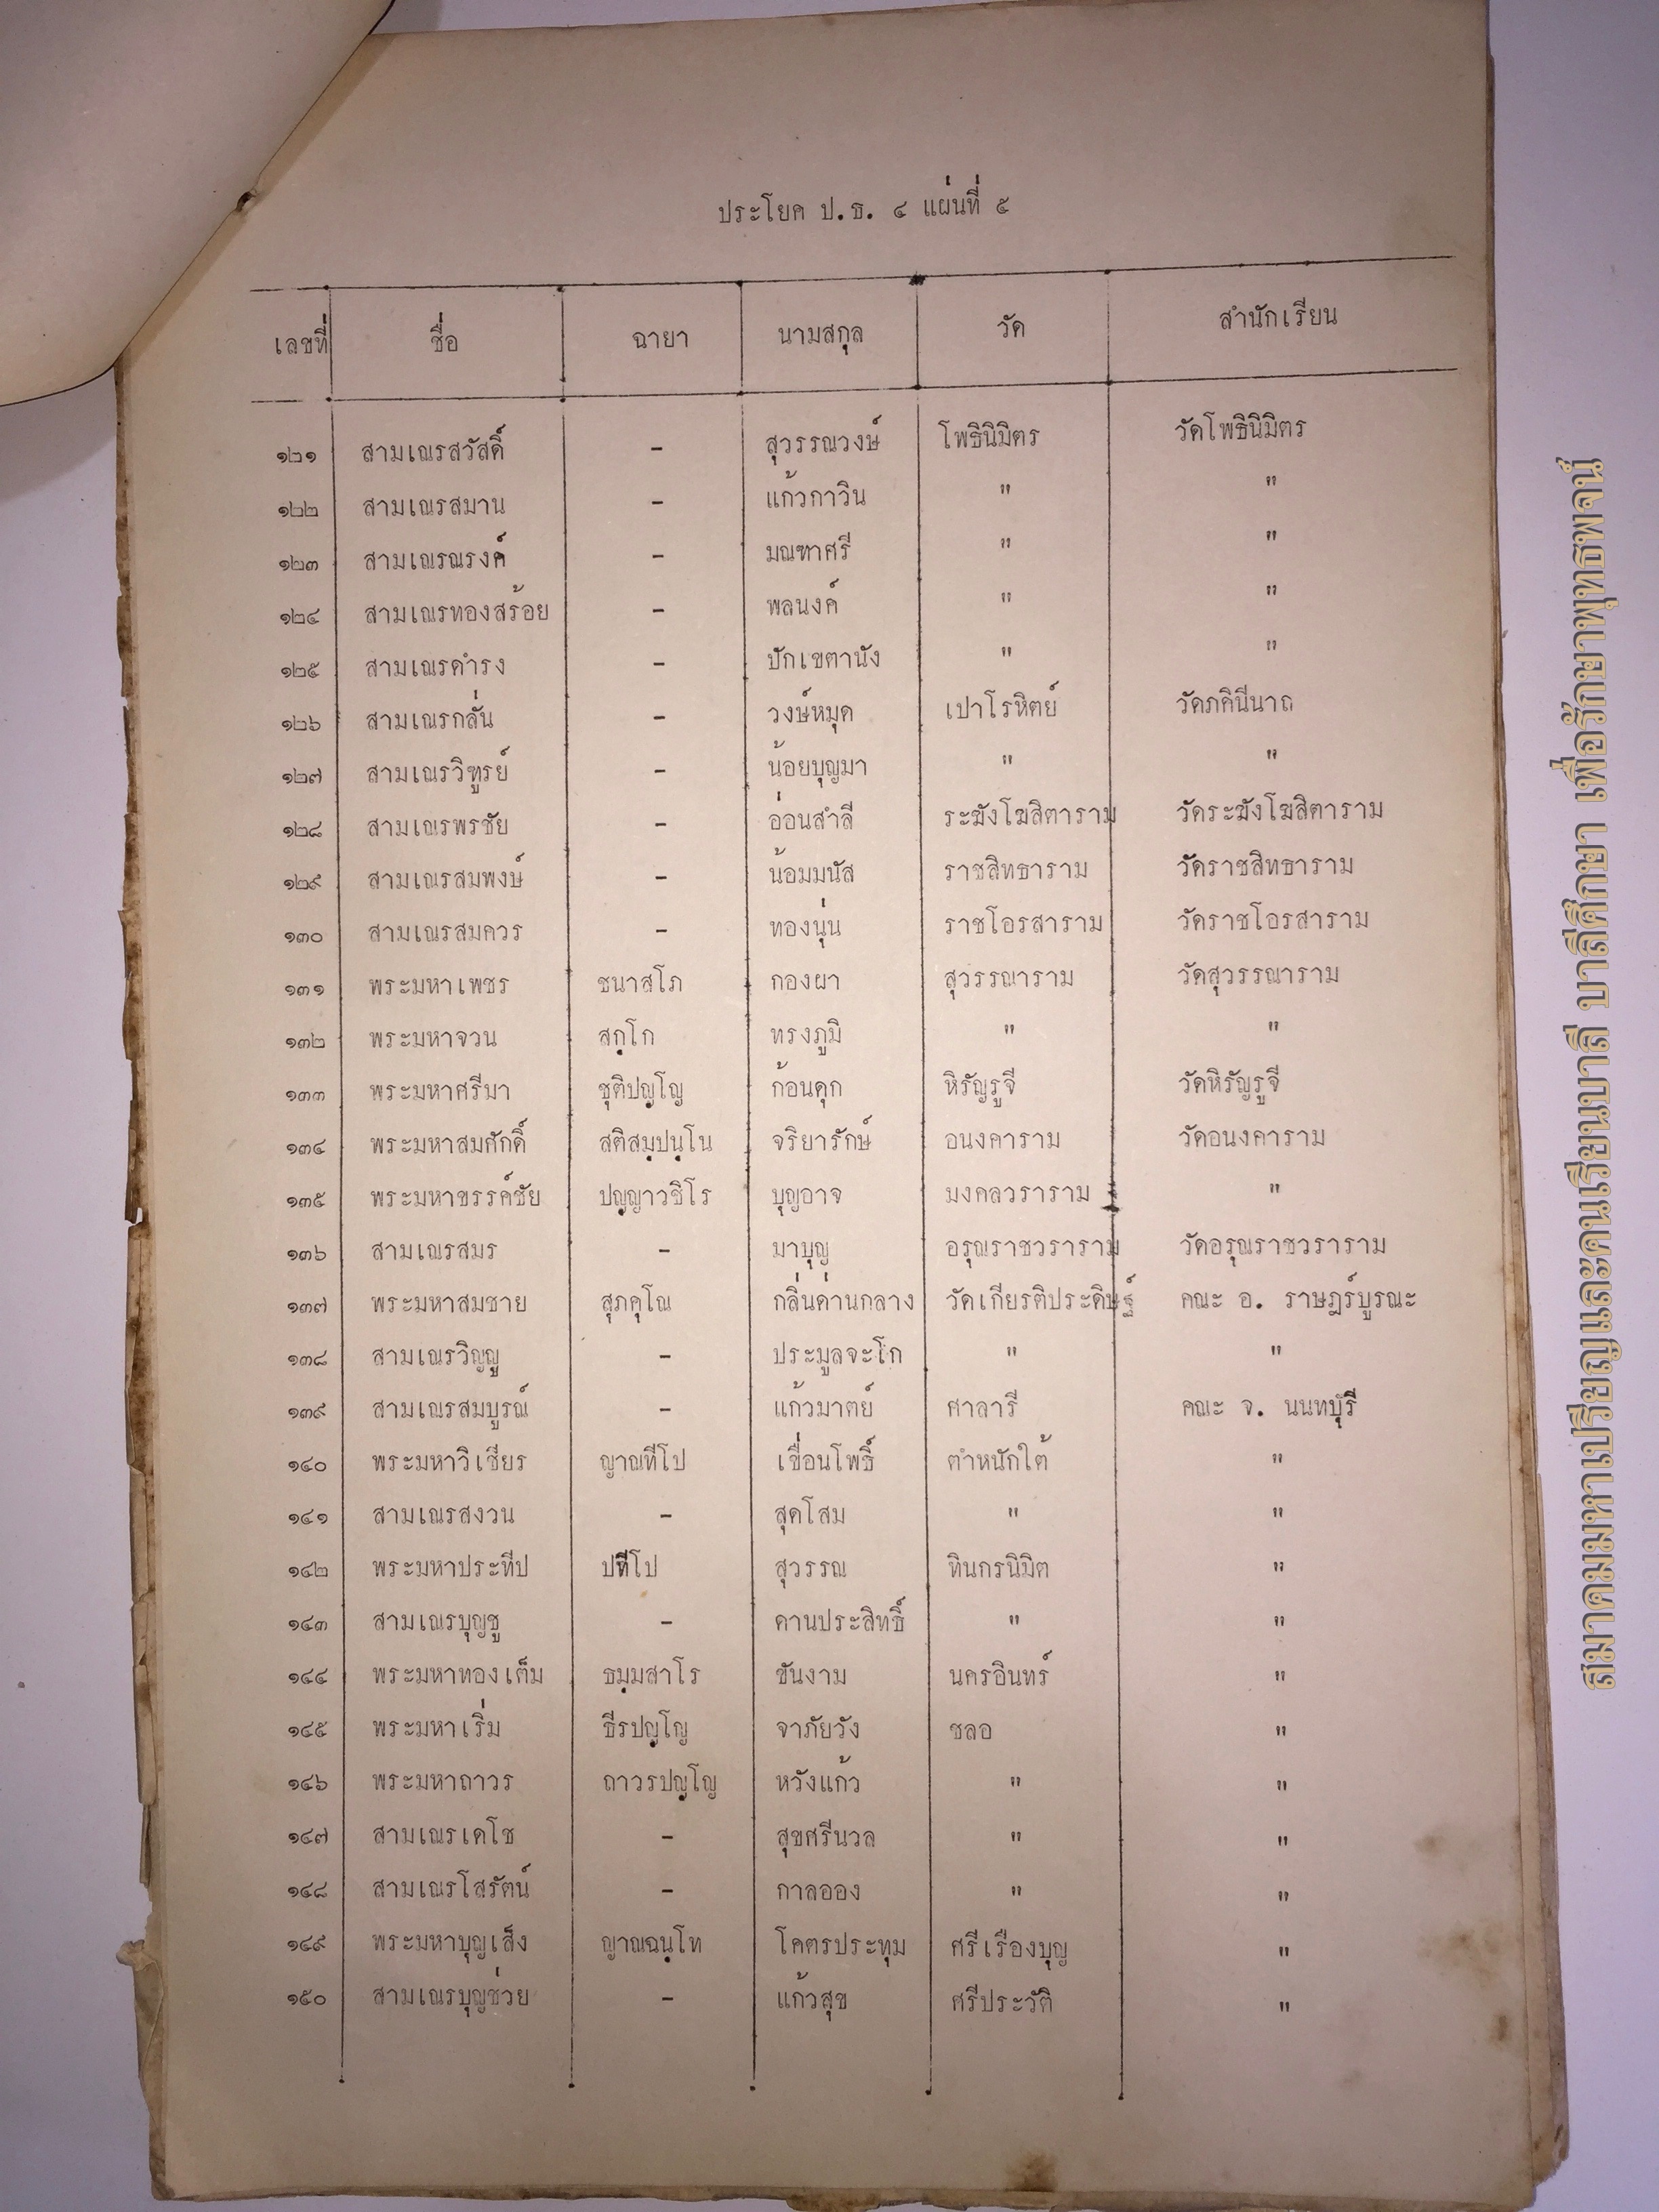 ประโยค ป.ธ. ๔ แผ่นที่ ๕
เลขที่ ชื่อ ฉายา นามสกุล วัด สำนักเรียน
๑๒๑ สามเณรสวัสดิ์ - สุวรรณวงษ์ โพธินิมิตร วัดโพธินิมิตร
๑๒๒ สามเณรสมาน - แก้วกาวิน " "
๑๒๓ สามเณรณรงค์ - มณฑาศรี " "
๑๒๔ สามเณรทองสร้อย - พลนงค์ " "
๑๒๕ สามเณรดำรง - ปักเขตานัง " "
๑๒๖ สามเณรกลั่น - วงษ์หมุด เปาโรหิตย์ วัดภคินีนาถ
๑๒๗ สามเณรวิฑูรย์ - น้อยบุญมา " "
๑๒๘ สามเณรพรชัย - อ่อนสำลี ระฆังโฆสิตาราม วัดระฆังโฆสิตาราม
๑๒๙ สามเณรสมพงษ์ - น้อมมนัส ราชสิทธาราม วัดราชสิทธาราม
๑๓๐ สามเณรสมควร - ทองนุ่น ราชโอรสาราม วัดราชโอรสาราม
๑๓๑ พระมหาเพชร ชนาสโภ กองผา สุวรรณาราม วัดสุวรรณาราม
๑๓๒ พระมหาจวน สกฺโก ทรงภูมิ " "
๑๓๓ พระมหาศรีมา ชุติปญฺโญ ก้อนดุก หิรัญรูจี วัดหิรัญรูจี
๑๓๔ พระมหาสมศักดิ์ สติสมฺปนฺโน จริยารักษ์ อนงคาราม วัดอนงคาราม
๑๓๕ พระมหาขรรค์ชัย ปญฺญาวชิโร บุญอาจ มงคลวราราม "
๑๓๖ สามเณรสมร - มาบุญ อรุณราชวราราม วัดอรุณราชวราราม
๑๓๗ พระมหาสมชาย สุภคุโณ กลิ่นด่านกลาง วัดเกียรติประดิษฐ์ คณะ อ. ราษฎร์บูรณะ
๑๓๘ สามเณรวิญญู - ประมูลจะโก " "
๑๓๙ สามเณรสมบูรณ์ - แก้วมาตย์ ศาลารี คณะ จ. นนทบุรี
๑๔๐ พระมหาวิเชียร ญาณทีโป เขื่อนโพธิ์ ตำหนักใต้ "
๑๔๑ สามเณรสงวน - สุดโสม " "
๑๔๒ พระมหาประทีป ปทีโป สุวรรณ ทินกรนิมิต "
๑๔๓ สามเณรบุญชู - คานประสิทธิ์ " "
๑๔๔ พระมหาทองเต็ม ธมฺมสาโร ขันงาม นครอินทร์ "
๑๔๕ พระมหาเริ่ม ธีรปญฺโญ จาภัยวัง ชลอ "
๑๔๖ พระมหาถาวร ถาวรปญฺโญ หวังแก้ว " "
๑๔๗ สามเณรเดโช - สุขศรีนวล " "
๑๔๘ สามเณรโสรัตน์ - กาลออง " "
๑๔๙ พระมหาบุญเส็ง ญาณฉนฺโท โคตรประทุม ศรีเรืองบุญ "
๑๕๐ สามเณรบุญช่วย - แก้วสุข ศรีประวัติ "
สมาคมมหาเปรียญและคนเรียนบาลี บาลีศึกษา เพื่อรักษาพุทธพจน์